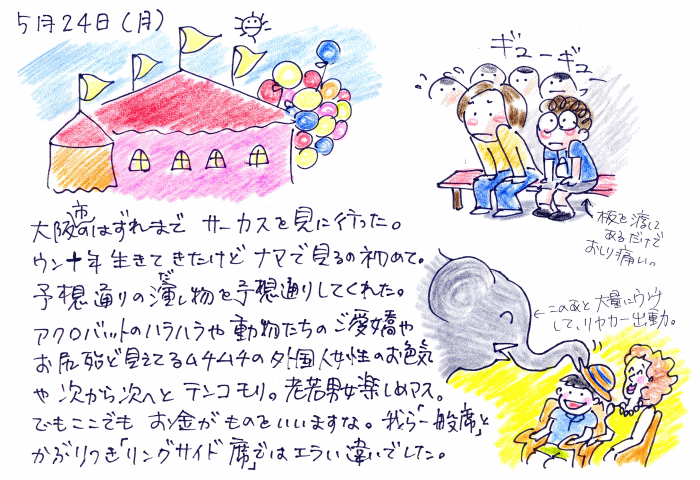 5月24日(月)
ギューギュー
大阪市のはずれまで サーカスを見に行った。
ウン十年生きてきたけど ナマで見るの初めて。
予想通りの演し物を予想通りしてくれた。
だ
アクロバットのハラハラや動物たちのご愛嬌や
お尻殆ど見えてるムチムチの外国人女性のお色気
や次から次へと テンコモリ。老若男女楽しめマス。
でもここでも お金がものをいいますな。我ら「一般席」と
かぶりつき「リングサイド席」ではエラい違いでした。
板を渡して
あるだけで
おしり痛い。
←このあと大量にウンチ
して、リヤカー出動。